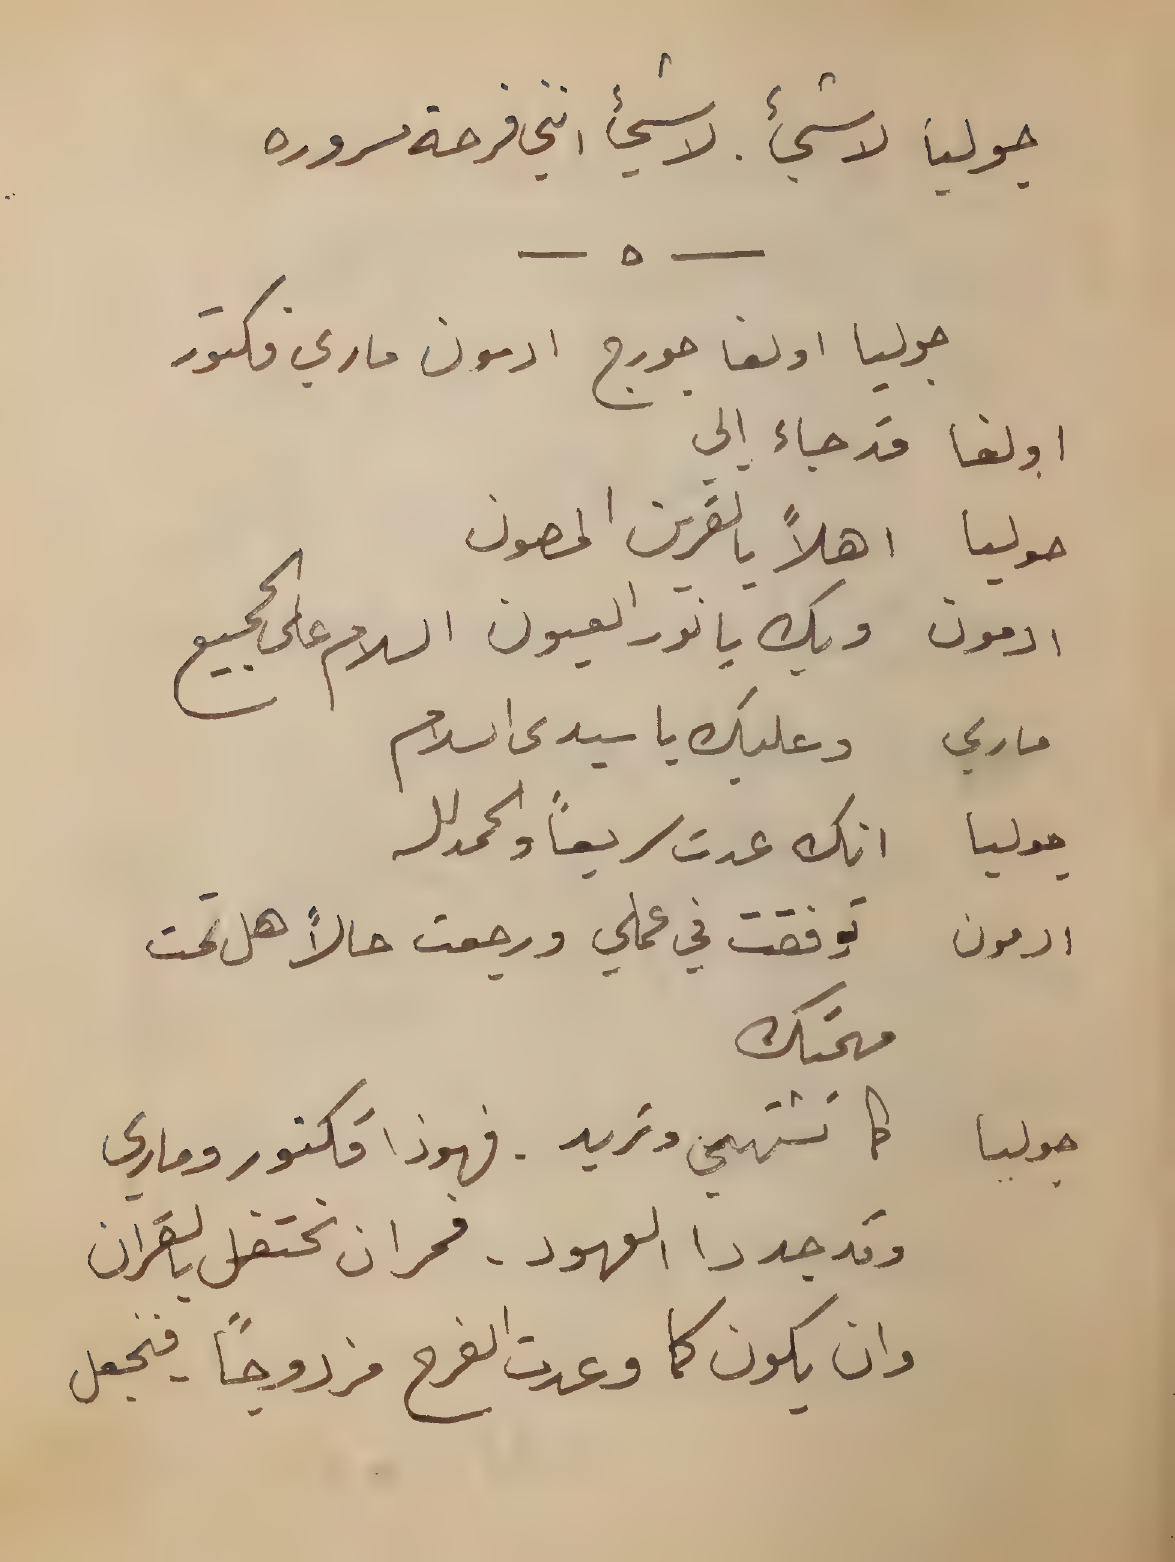 جوليا لا شيئ . لا شيئ انني فرحة مسروره
— ه —
جوليا اولغا جورج ادمون ماري فكتور
اولغا قد جاء إلي
جوليا اهلاً بالقرين المصون
ادمون وبك يا نور العيون السلام على الجميع
ماري وعليك يا سيدى السلام
جوليا انك عدت سريعاً والحمد لله
ادمون توفقت في عملي ورجعت حالاً هل تمت
مهمتك
جوليا كما تشتهي وتريد . فهوذا فكتور وماري
وقد جددا العهود . فمر ان نحتفل بالقران
وان يكون كما وعدت الفرح مزدوجاً . فنجعل